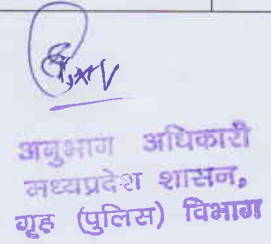 अनुभाग अधिकारी
मध्यप्रदेश शासन,
गृह (पुलिस) विभाग